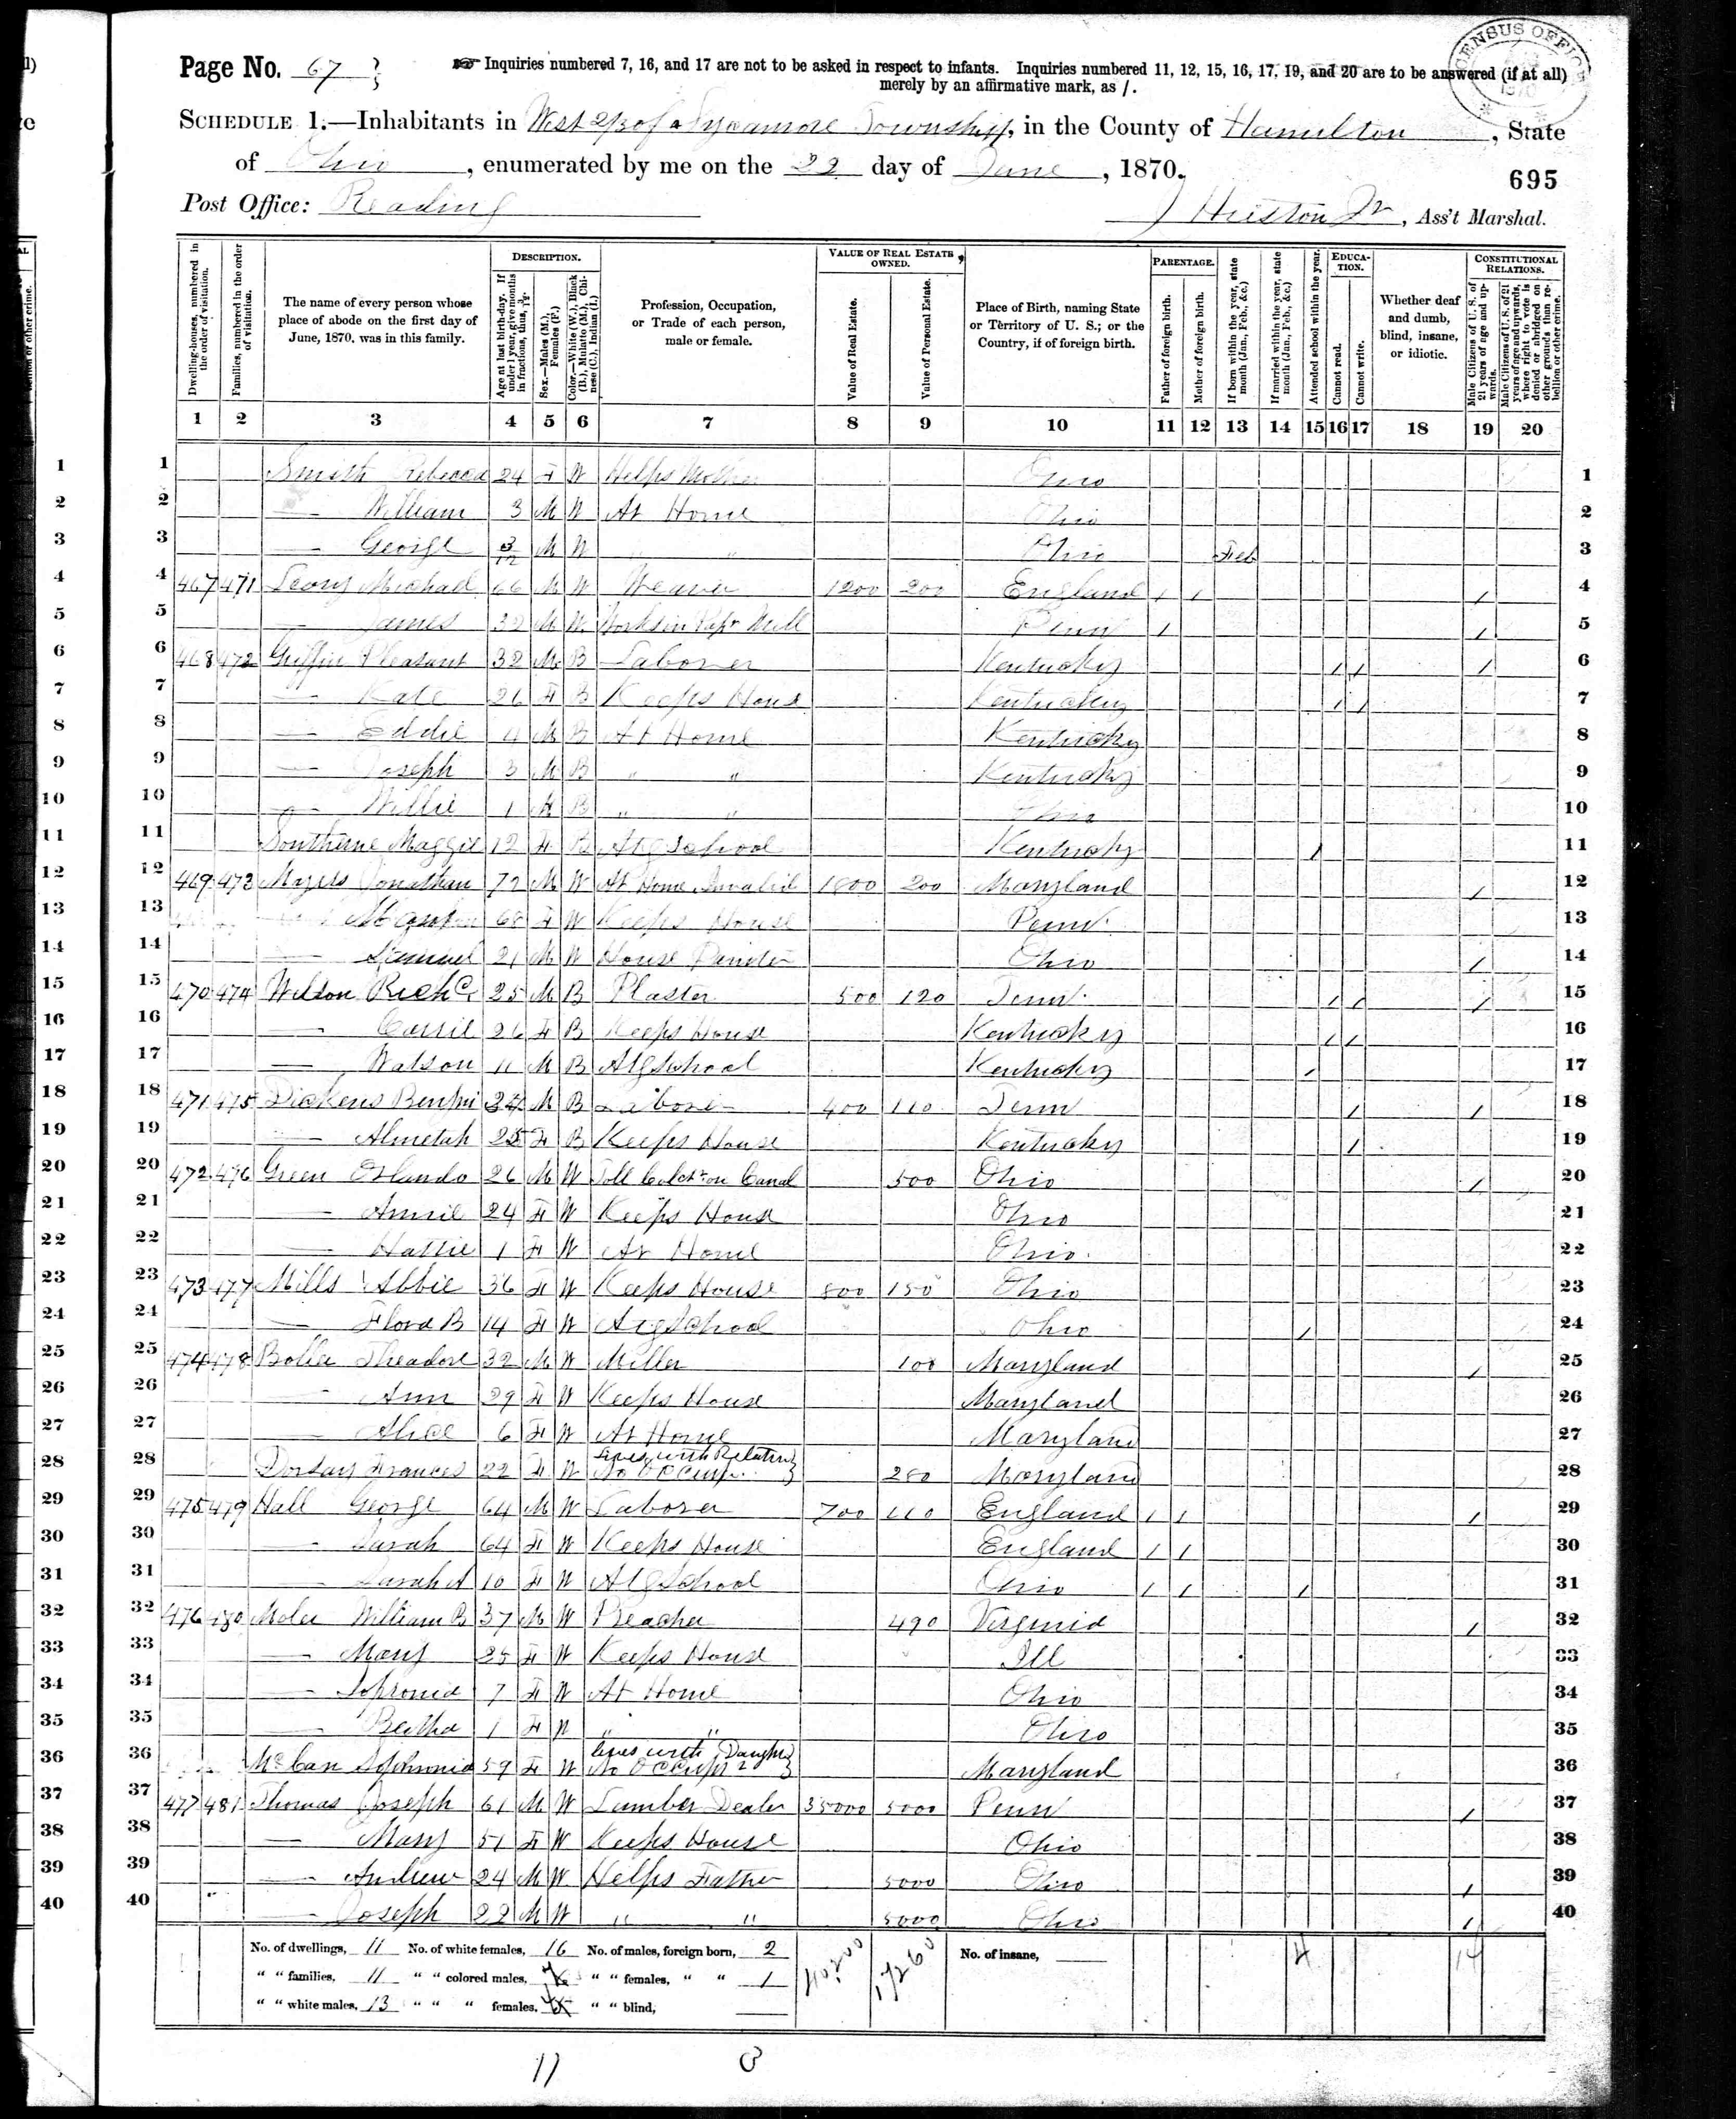 Page No. 67
☞ Inquiries numbered 7, 16, and 17 are not to be asked in respect to infants. Inquiries numbered 11, 12, 15, 16, 17, 19, and 20 are to be answered (if at all)
merely by an affirmative mark, as /.
CENSUS OFFICE 1870
SCHEDULE 1.—Inhabitants in West 2/3 of Sycamore Township, in the County of Hamilton, State
of Ohio, enumerated by me on the 22 day of June, 1870.
695
Post Office: Reading
J Huston Jr, Ass't Marshal.
Dwelling-houses, numbered in the order of visitation.
Families, numbered in the order of visitation.
The name of every person whose place of abode on the first day of June, 1870, was in this family.
DESCRIPTION.
Age at last birth-day. If under 1 year, give months in fractions, thus, 3/12.
Sex.—Males (M.), Females (F.)
Color.—White (W.), Black (B.), Mulatto (M.), Chinese (C.), Indian (I.)
Profession, Occupation, or Trade of each person, male or female.
VALUE OF REAL ESTATE OWNED.
Value of Real Estate.
Value of Personal Estate.
Place of Birth, naming State or Territory of U. S.; or the Country, if of foreign birth.
PARENTAGE.
Father of foreign birth.
Mother of foreign birth.
If born within the year, state month (Jan., Feb., &c.)
If married within the year, state month (Jan., Feb., &c.)
Attended school within the year.
EDUCATION.
Cannot read.
Cannot write.
Whether deaf and dumb, blind, insane, or idiotic.
CONSTITUTIONAL RELATIONS.
Male Citizens of U. S. of 21 years of age and upwards.
Male Citizens of U. S. of 21 years of age and upwards, where right to vote is denied or abridged on other grounds than rebellion or other crime.
1 2 3 4 5 6 7 8 9 10 11 12 13 14 15 16 17 18 19 20
1 Smith Rebecca 24 F W Helps Mother Ohio 1
2 — William 3 M W At Home Ohio 2
3 — George 3/12 M W " " Ohio Feb 3
4 467 471 Michael 66 M W Weaver 1200 200 England / / / 4
5 — James 32 M W Works in Papr Mill Penn / / 5
6 468 472 Griffin Pleasant 32 M B Laborer Kentucky / / / 6
7 — Kate 26 F B Keeps House Kentucky / / 7
8 — Eddie 4 M B At Home Kentucky 8
9 — Joseph 3 M B " " Kentucky 9
10 — Willie 1 M B " " Ohio 10
11 Southerne Maggie 12 F B Atg School Kentucky / 11
12 469 473 Jonathan 72 M W At Home Invalid 1800 200 Maryland / 12
13 68 F W Keeps House Penn 13
14 — Samuel 21 M W House Painter Ohio / 14
15 470 474 Wilson Richd 25 M B Plaster 500 120 Tenn / / / 15
16 — Carrie 26 F B Keeps House Kentucky / / 16
17 — Watson 11 M B Atg School Kentucky / 17
18 471 475 Dickens Benjmi 34 M B Laborer 400 110 Tenn / / 18
19 — Almetah 25 F B Keeps House Kentucky / 19
20 472 476 Green Orlando 26 M W Toll Colctr on Canal 500 Ohio / 20
21 — Annie 24 F W Keeps House Ohio 21
22 — Hattie 1 F W At Home Ohio 22
23 473 477 Mills Abbie 36 F W Keeps House 800 150 Ohio 23
24 — Flora B 14 F W Atg School Ohio / 24
25 474 478 Theadore 32 M W Miller 100 Maryland / 25
26 — Ann 29 F W Keeps House Maryland 26
27 — Alice 6 F W At Home Maryland 27
28 Dorsay Frances 22 F W Lives with Relatives No Occup 280 Maryland 28
29 475 479 Hall George 64 M W Laborer 700 110 England / / / 29
30 — Sarah 64 F W Keeps House England / / 30
31 — Sarah A 10 F W Atg School Ohio / / / 31
32 476 480 William B 37 M W 490 Virginia / 32
33 — Mary 25 F W Keeps House Ill 33
34 — Sophronia 7 F W At Home Ohio 34
35 — Bertha 1 F W " " Ohio 35
36 McCan Sophronia 59 F W Lives with Daughtr No Occupn Maryland 36
37 477 481 Thomas Joseph 61 M W Lumber Dealer 35000 5000 Penn / 37
38 — Mary 51 F W Keeps House Ohio 38
39 — Andrew 24 M W Helps Father 5000 Ohio / 39
40 — Joseph 22 M W " " 5000 Ohio / 40
No. of dwellings, 11 No. of white females, 16 No. of males, foreign born, 2 40,200 17260 No. of insane, 4 14
" " families, 11 " " colored males, " " females, " " 1
" " white males, 13 " " " females, " " blind,